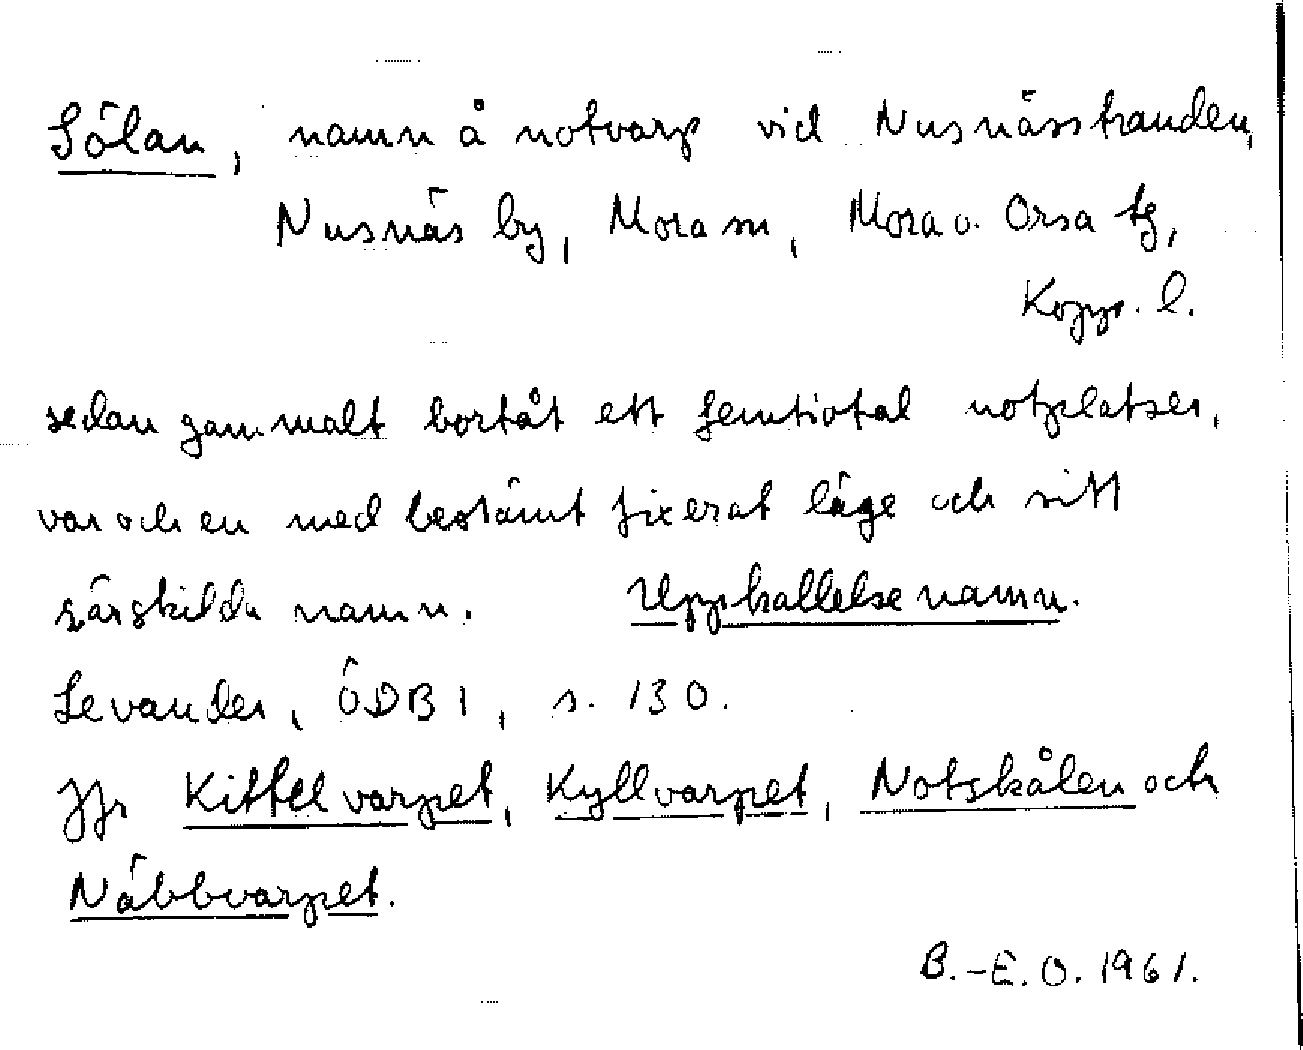 Sölan, namn å notvarp vid Nusnässtranden,
Nusnäs by, Mora sn, Mora o. Orsa tg,
Kopp. l.
sedan gammalt bortåt ett femtiotal notplatser,
var och en med bestämt fixerat läge och sitt
särskilda namn. Uppkallelsenamn.
Levander, ÖDB 1, s. 130.
Jfr Kittelvarpet, Kyllvarpet, Notskålen och
Näbbvarpet.
B.-E. O. 1961.